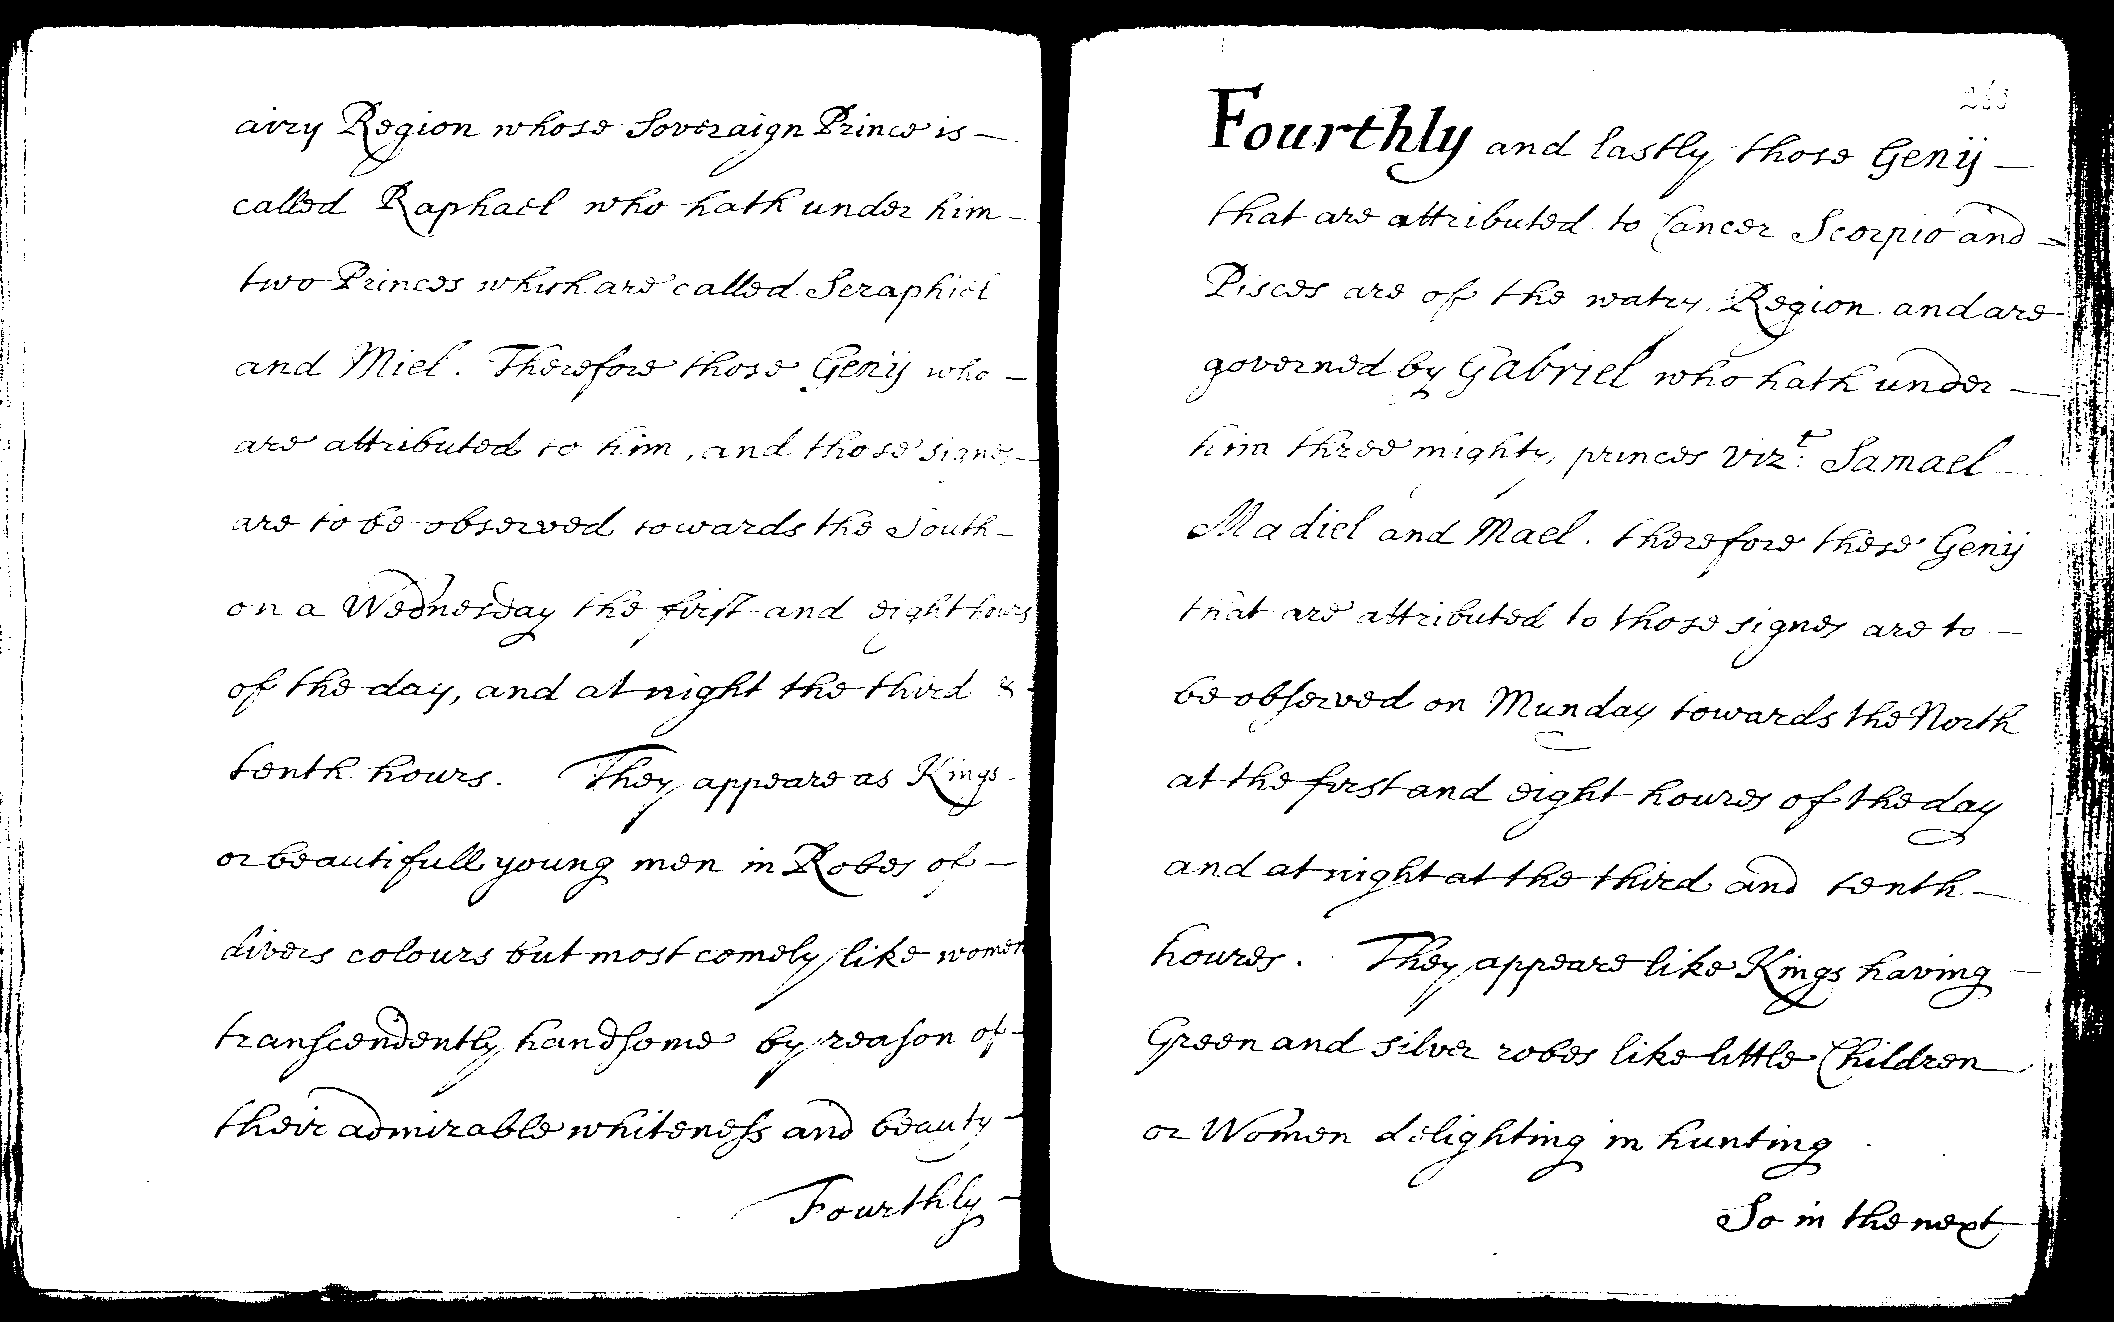 airy Region whose Soveraign Prince is —
called Raphael who hath under him —
two Princes which are called Seraphiel
and Miel. Therefore those Genij who —
are attributed to him, and those signes —
are to be observed towards the South —
on a Wednesday the first and eight hours
of the day, and at night the third &
tenth hours. They appeare as Kings
or beautifull young men in Robes of —
divers colours but most comely like women
transcendently handsome by reason of —
their admirable whiteness and beauty —
Fourthly —
Fourthly and lastly those Genij —
that are attributed to Cancer Scorpio and —
Pisces are of the watry Region and are
governed by Gabriel who hath under —
him three mighty princes vizt: Samael —
Madiel and Mael. therefore these Genij
that are attributed to those signes are to —
be observed on Munday towards the North
at the first and eight houres of the day
and at night at the third and tenth —
houres. They appeare like Kings having —
Green and silver robes like little Children
or Women delighting in hunting.
So in the next